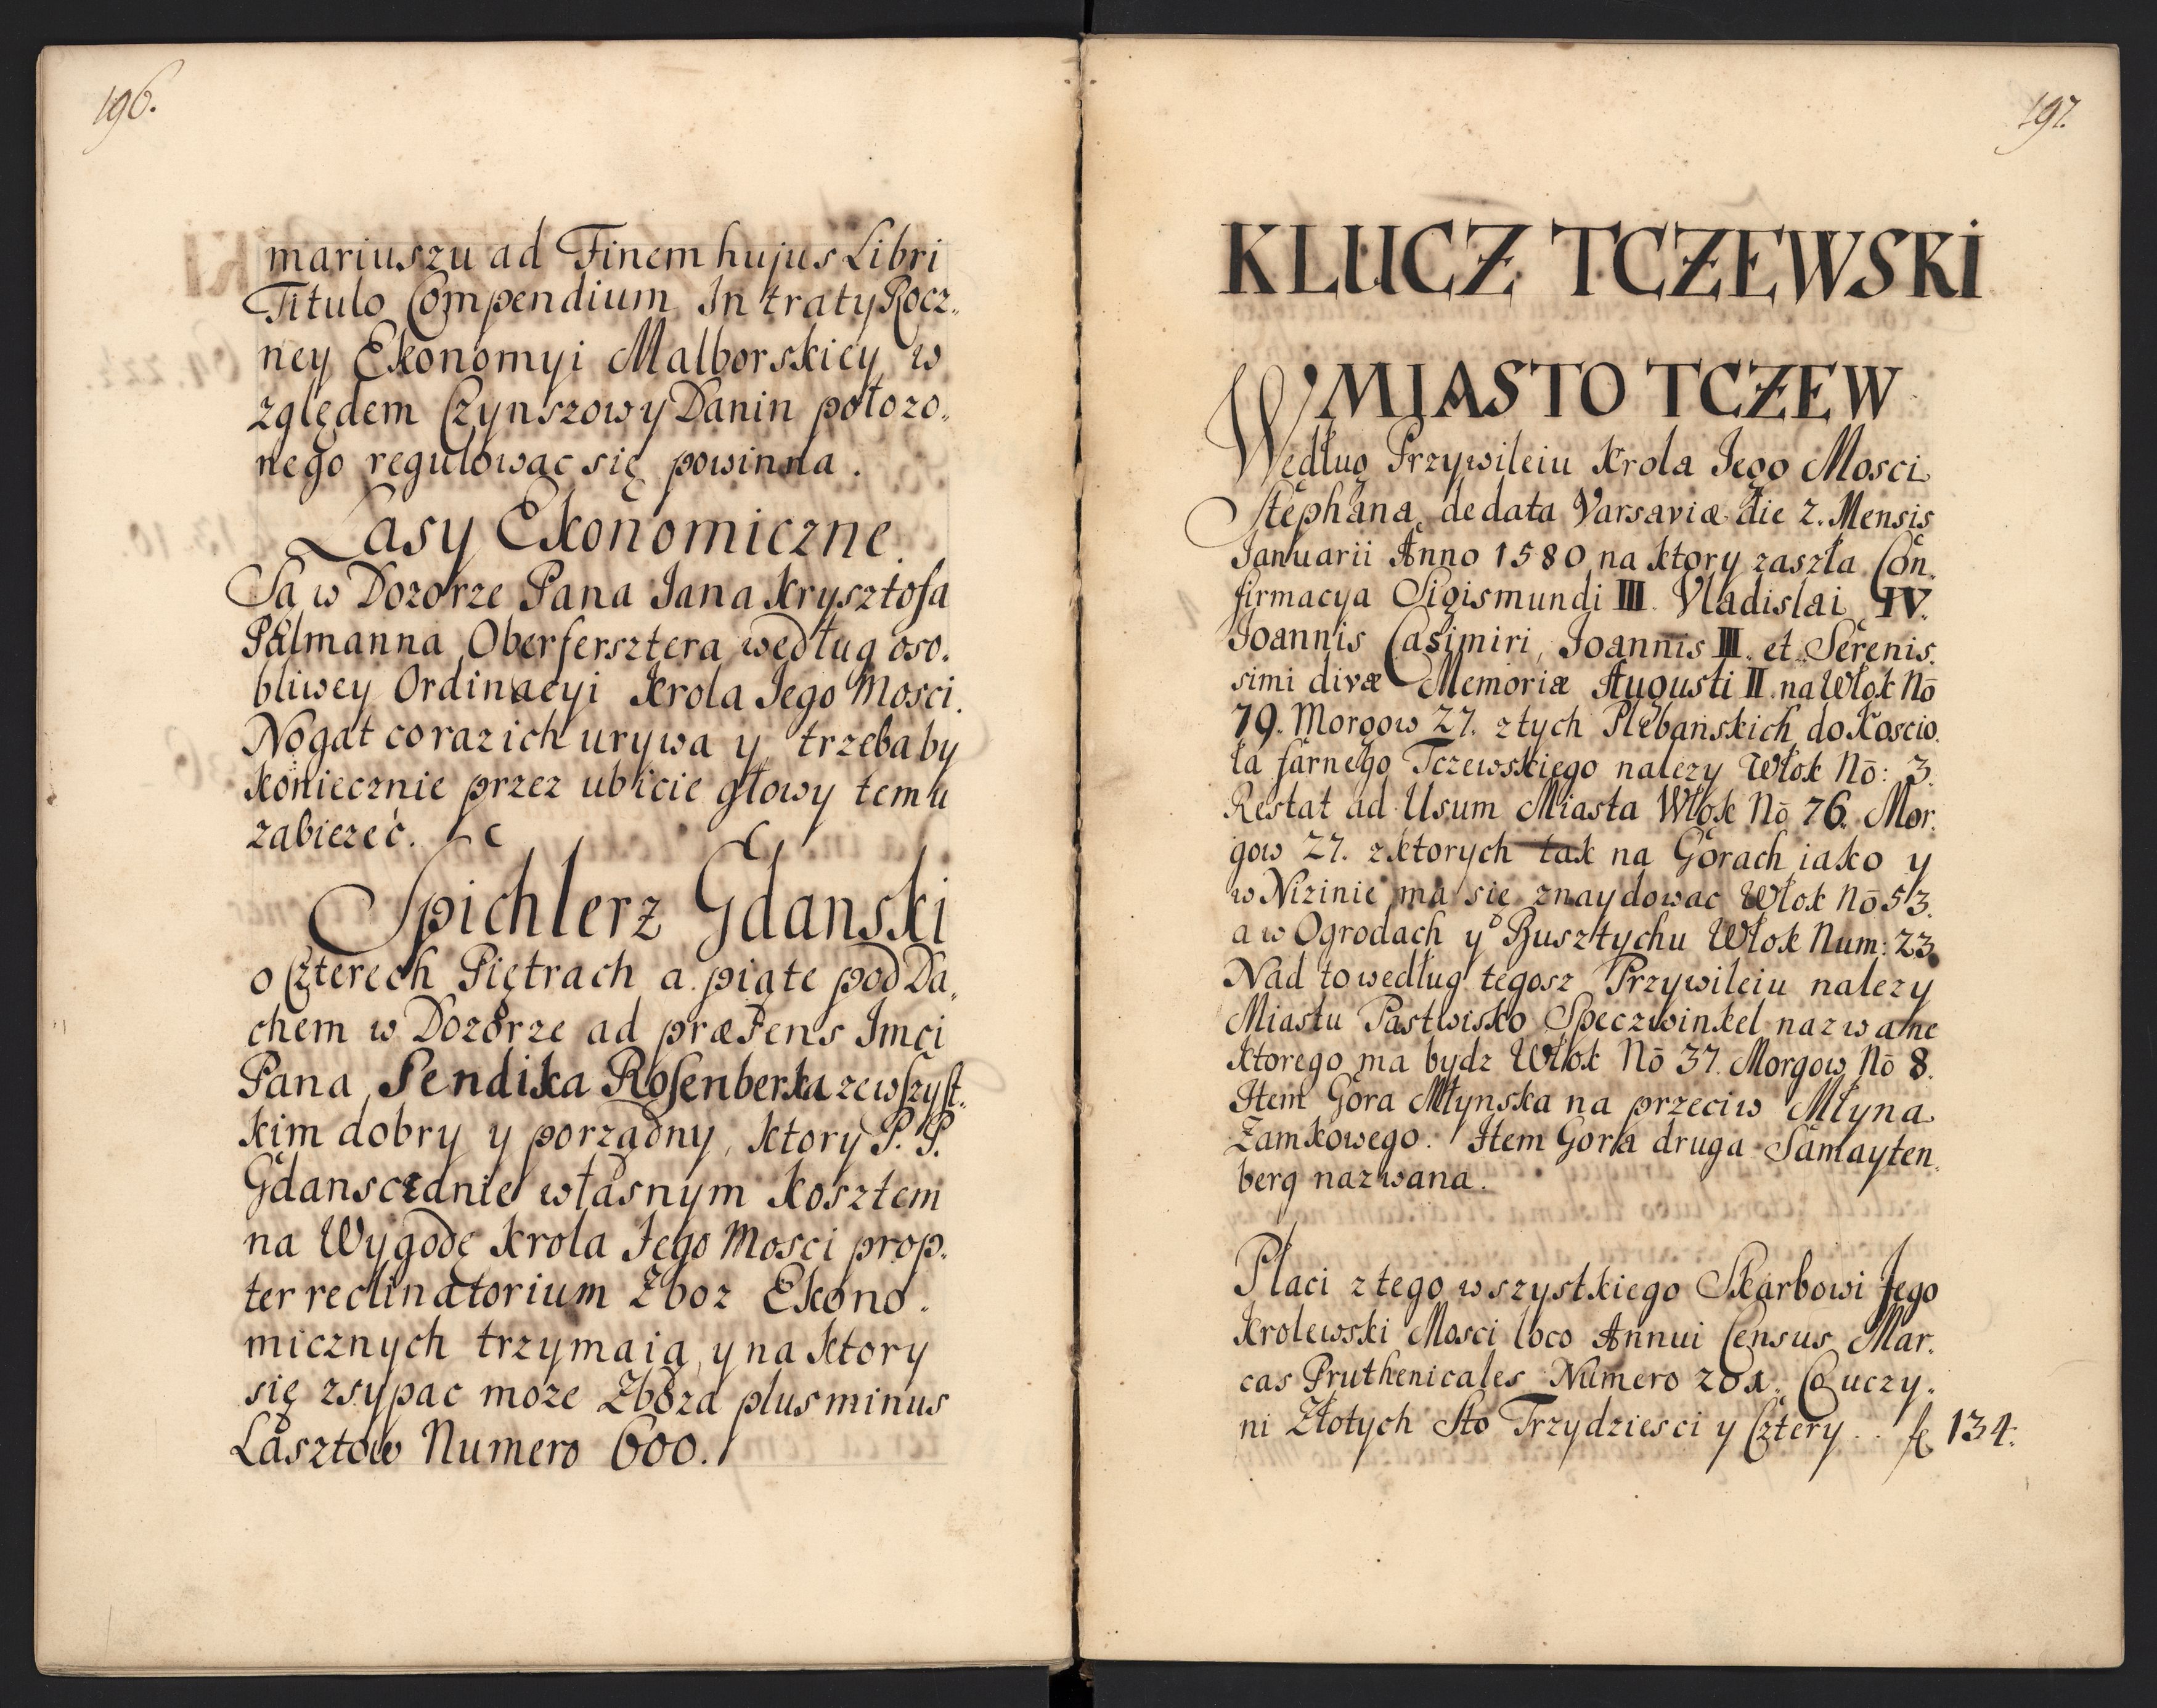 196.
mariuszu ad Finem hujus Libri
Titulo Compendium Intraty Rocz„
ney Ekonomyi Malborskiey w
zględem Czynszowy Danin położo„
nego regulowac się powinna.
Lasy Ekonomiczne.
Są w Dozorze Pana Jana Krysztofa
Palmanna Oberfersztera według oso.
bliwey Ordinacyi Krola Jego Mosci.
Nogat coraz ich urywa y trzebaby
koniecznie przez ubicie głowy temu
zabiezeć.
Spichlerz Gdanski
o Czterech Piętrach a piąte pod Da„
chem w Dozorze ad præsens Jmci
Pana Sendika Rosenberka ze wszyst„
kim dobry y porządny, ktory P. P.
Gdansczanie własnym kosztem
na Wygodę Krola Jego Mosci prop.
ter reclinatorium Zboz Ekono.
micznych trzymaią, y na ktory
się zsypac moze Zboza plus minus
Lasztow Numero 600.
197.
KLUCZ TCZEWSKI
MIASTO TCZEW
Według Przywileiu Krola Jego Mosci
Stephana de data Varsaviæ die 2. Mensis
Januarii Anno 1580 na ktory zaszła Con„
firmacya Sigismundi III. Vladislai IV.
Joannis Casimiri, Joannis III. et Serenis.
simi divæ Memoriæ Augusti II. na Włok Nō
79. Morgow 27. z tych Plebanskich do Koscio.
ła farnego Tczewskiego nalezy Włok Nō: 3.
Restat ad Usum Miasta Włok Nō 76. Mor.
gow 27. z ktorych tak na Gorach iako y
w Nizinie ma sie znaydowac Włok Nō 53.
a w Ogrodach y Busztychu Włok Num: 23.
Nad to według tegosz Przywileiu nalezy
Miastu Pastwisko Speczwinkel nazwane
ktorego ma bydz Włok Nō 37. Morgow Nō 8.
Item Gora Młynska na przeciw Młyna
Zamkowego. Item Gora druga Samayten„
berg nazwana.
Płaci z tego wszystkiego Skarbowi Jego
Krolewski Mosci loco Annui Census Mar.
cas Pruthenicales Numero 201. Co uczy„
ni Złotych Sto Trzydziesci y Cztery . . f. 134: